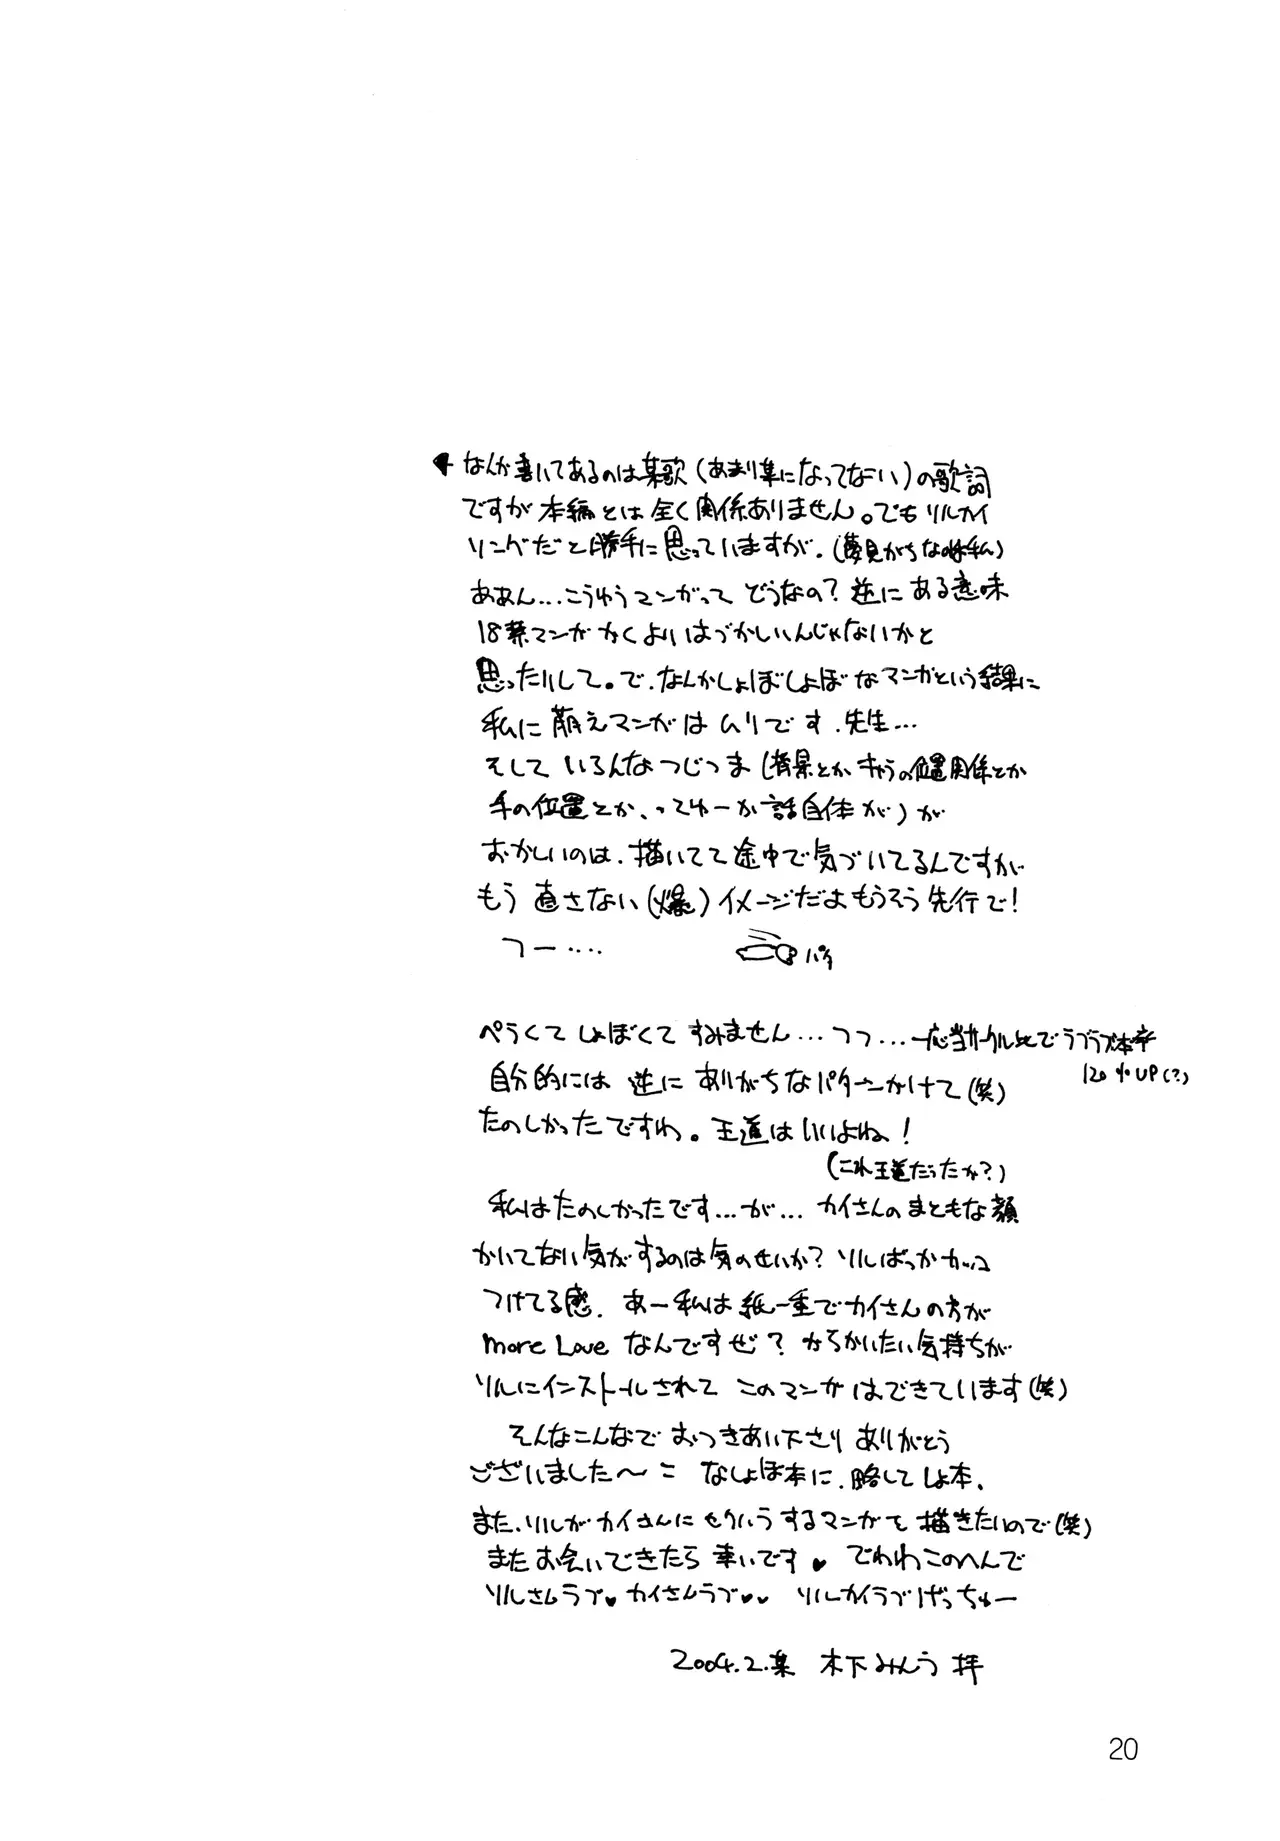 なんか書いてあるのは某歌(あまり某になってない)の歌詞
ですが本編とは全く関係ありません。でもソルカイ
ソングだと勝手に思っていますが。(夢見がちなのは私)
ああん…こうゆうマンガって どうなの?逆にある意味
18禁マンガかくよりはづかしいんじゃないかと
思ったりして。で、なんかしょぼしょぼなマンガという結果に
私に萌えマンガはムリです、先生…
そして いろんなつじつま(背景とか キャラの位置関係とか
手の位置とか、ってゆーか話自体が)が
おかしいのは、描いてて途中で気づいてるんですが
もう直さない(爆)イメージだよもうそう先行で!
つー‥‥
パタ
ぺらくて しょぼくて すみません…フフ…一応当サークル比でラブラブ本卒
120%UP(?)
自分的には 逆に ありがちなパターンかけて(笑)
たのしかったですわ。王道はいいよね!
(これ王道だったか?)
私はたのしかったです…が… カイさんのまともな顔
かいてない気がするのは気のせいか?ソルばっかカッコ
つけてる感。あー私は紙一重でカイさんの方が
more Love なんですぜ? からかいたい気持ちが
ソルにインストールされて このマンガはできています(笑)
そんなこんなで おつきあい下さり ありがとう
ございました〜 こ なしょぼ本に、略してしょ本。
また、ソルがカイさんにせりいうするマンガを 描きたいので(笑)
またお会いできたら 幸いです♥ でわわこのへんで
ソルさんラブ♥カイさんラブ♥♥ ソルカイラブげっちゅー
2004.2.某 木下みんう 拝
20